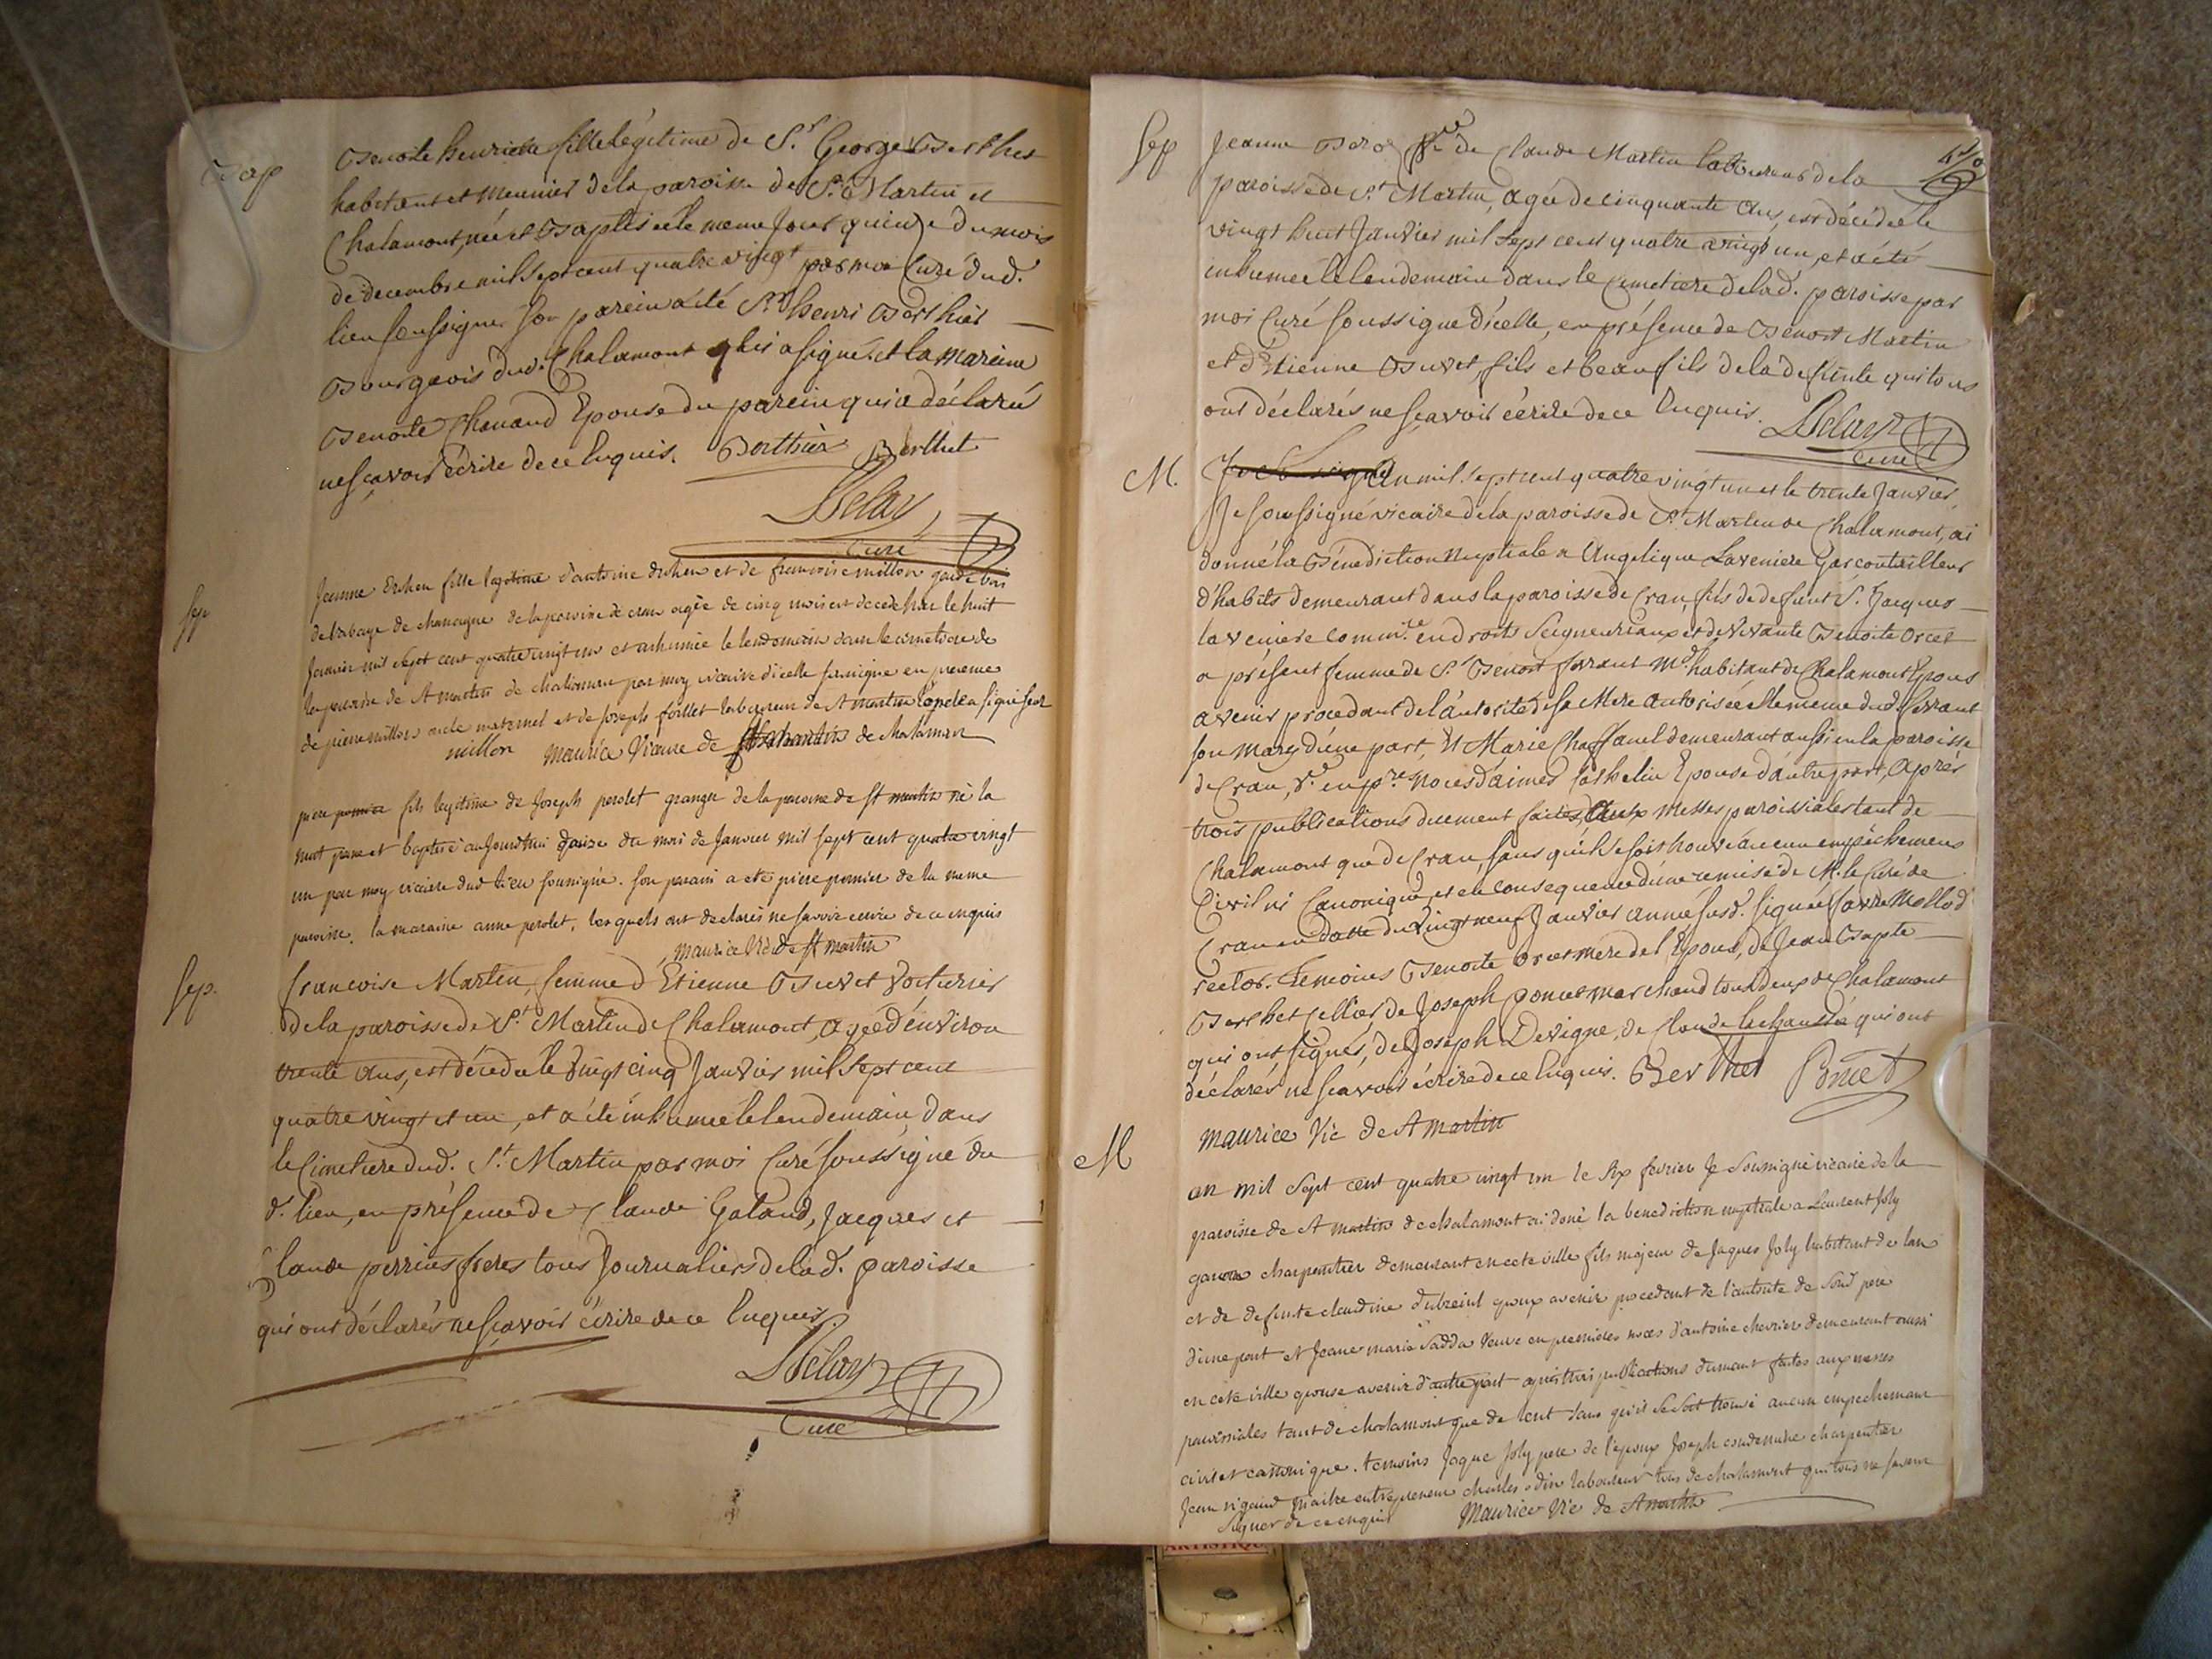 Bap
Benoite henriette fille légitime de Sr. George Berthet
habitant et meunier de la paroisse de St. Martin et
Chalamont, née et Baptisée le meme Jour quinze du mois
de decembre mil sept cent quatre vingt par moi Curé dud.
lieu soussigné. son parein a été Sr. henri Berthier
Bourgeois dud. Chalamont qui a signé et la mareine
Benoite Chanand Epouse du parein qui a déclaré
ne sçavoir écrire de ce Enquis. Berthier Berthet
Delay
Curé
Sep
Jeanne fille legitime d'antoine et de francoise millon garde bois
de labaye de chassagne de la paroisse de cran agée de cinq mois est decedée hier le huit
Janvier mil sept cent quatre vingt un et a inhumée le lendemain dans le cimetiere de
la paroisse de St martin de chalamon par moy vicaire d'icelle soussigné en presence
de pierre millon oncle maternel et de Joseph follet laboureur de St martin l'oncle a signé seul
millon maurice Vicaire de St martin de chalamon
pierre fils legitime de Joseph perolet granger de la paroisse de St martin né la
nuit passé et baptisé aujourdhui du mois de Janvier mil sept cent quatre vingt
un par moy vicaire dud lieu soussigné. son parain a eté piere pomier de la meme
paroisse. la maraine anne perolet, lesquels ont declarés ne savoir ecrire de ce enquis
maurice Vic de St martin
Sep.
francoise Martin, femme d'Etienne Buvet Voiturier
de la paroisse de St. Martin de Chalamont, agée d'environ
trente ans, est décedée le vingt cinq Janvier mil sept cent
quatre vingt et un, et a été inhumée le lendemain, dans
le Cimetiere dud. St. Martin par moi Curé soussigné du
d. lieu, en présence de Claude Galand, Jacques et
Claude perrin freres tous Journaliers de lad. paroisse
qui ont déclarés ne sçavoir écrire de ce Enquis.
Delay
Curé
Sep
Jeanne de Claude Martin laboureur de la
paroisse de St. Martin, agée de cinquante ans, est décédée le
vingt huit Janvier mil sept cent quatre vingt un, et a été
inhumée le lendemain dans le Cimetiere de lad. paroisse par
moi Curé soussigné d'icelle, en présence de Benoit Martin
et d'Etienne Buvet, fils et beau fils de la defunte qui tous
ont déclarés ne sçavoir écrire de ce Enquis. Delay
Curé
M.
l'An mil sept cent quatre vingt un et le trente Janvier
Je soussigné vicaire de la paroisse de St. Martin de Chalamont, ai
donné la Bénédiction Nuptiale a Angelique Laveniere Garcon tailleur
d'habits demeurant dans la paroisse de Cran, fils de defunt Sr. Jacques
laveniere Commre. en droits Seigneuriaux et de Vivante Benoite Orcet
a présent femme de Sr. Benoit ferrant Md. habitant de Chalamont Epoux
avenir procedant de l'autorité de sa Mere autorisée elle meme dud. ferrant
son mary d'une part, et Marie Chaffanel demeurant aussi en la paroisse
de Cran, Ve. en pres. noces d'aimé Epouse d'autre part, Après
trois publications duement faites, aux messes paroissiales tant de
Chalamont que de Cran, sans qu'il se soit trouvé aucun empêchement
Civil ni Canonique, et en consequence d'une remise de M. le Curé de
Cran en datte du Vingt neuf Janvier année susd. signée
rector. Temoins Benoite Orcet mere de l'Epoux, de Jean Bapte
Berthet Cellier de Joseph Poncet marchand tous deux de Chalamont
qui ont signés, de Joseph Devigne, de Claude qui ont
déclarés ne sçavoir écrire de ce Enquis. Berthet Poncet
maurice Vic de St martin
M
an mil sept cent quatre vingt un le six fevrier Je soussigné vicaire de la
paroisse de St martin de chalamont ai doné la benediction nuptiale a Laurent Joly
garcon charpentier demeurant en cete ville fils majeur de Jaques Joly habitant de
et de defunte claudine dubreuil epoux avenir procedant de l'autorité de sond pere
d'une part et Jeane marie Sadda Veuve en premieres noces d'antoine chevrier demeurant aussi
en cete ville epouse avenir d'autre part apres trois publications dument faites aux messes
paroissiales tant de chalamont que de sans qu'il se soit trouvé aucun empechement
civil et canonique. temoins Jaque Joly pere de l'epoux Joseph charpentier
Jean rigaud maitre entrepreneur charles odin laboureur tous de chalamont qui tous ne savent
signer de ce enquis Maurice Vic de St martin